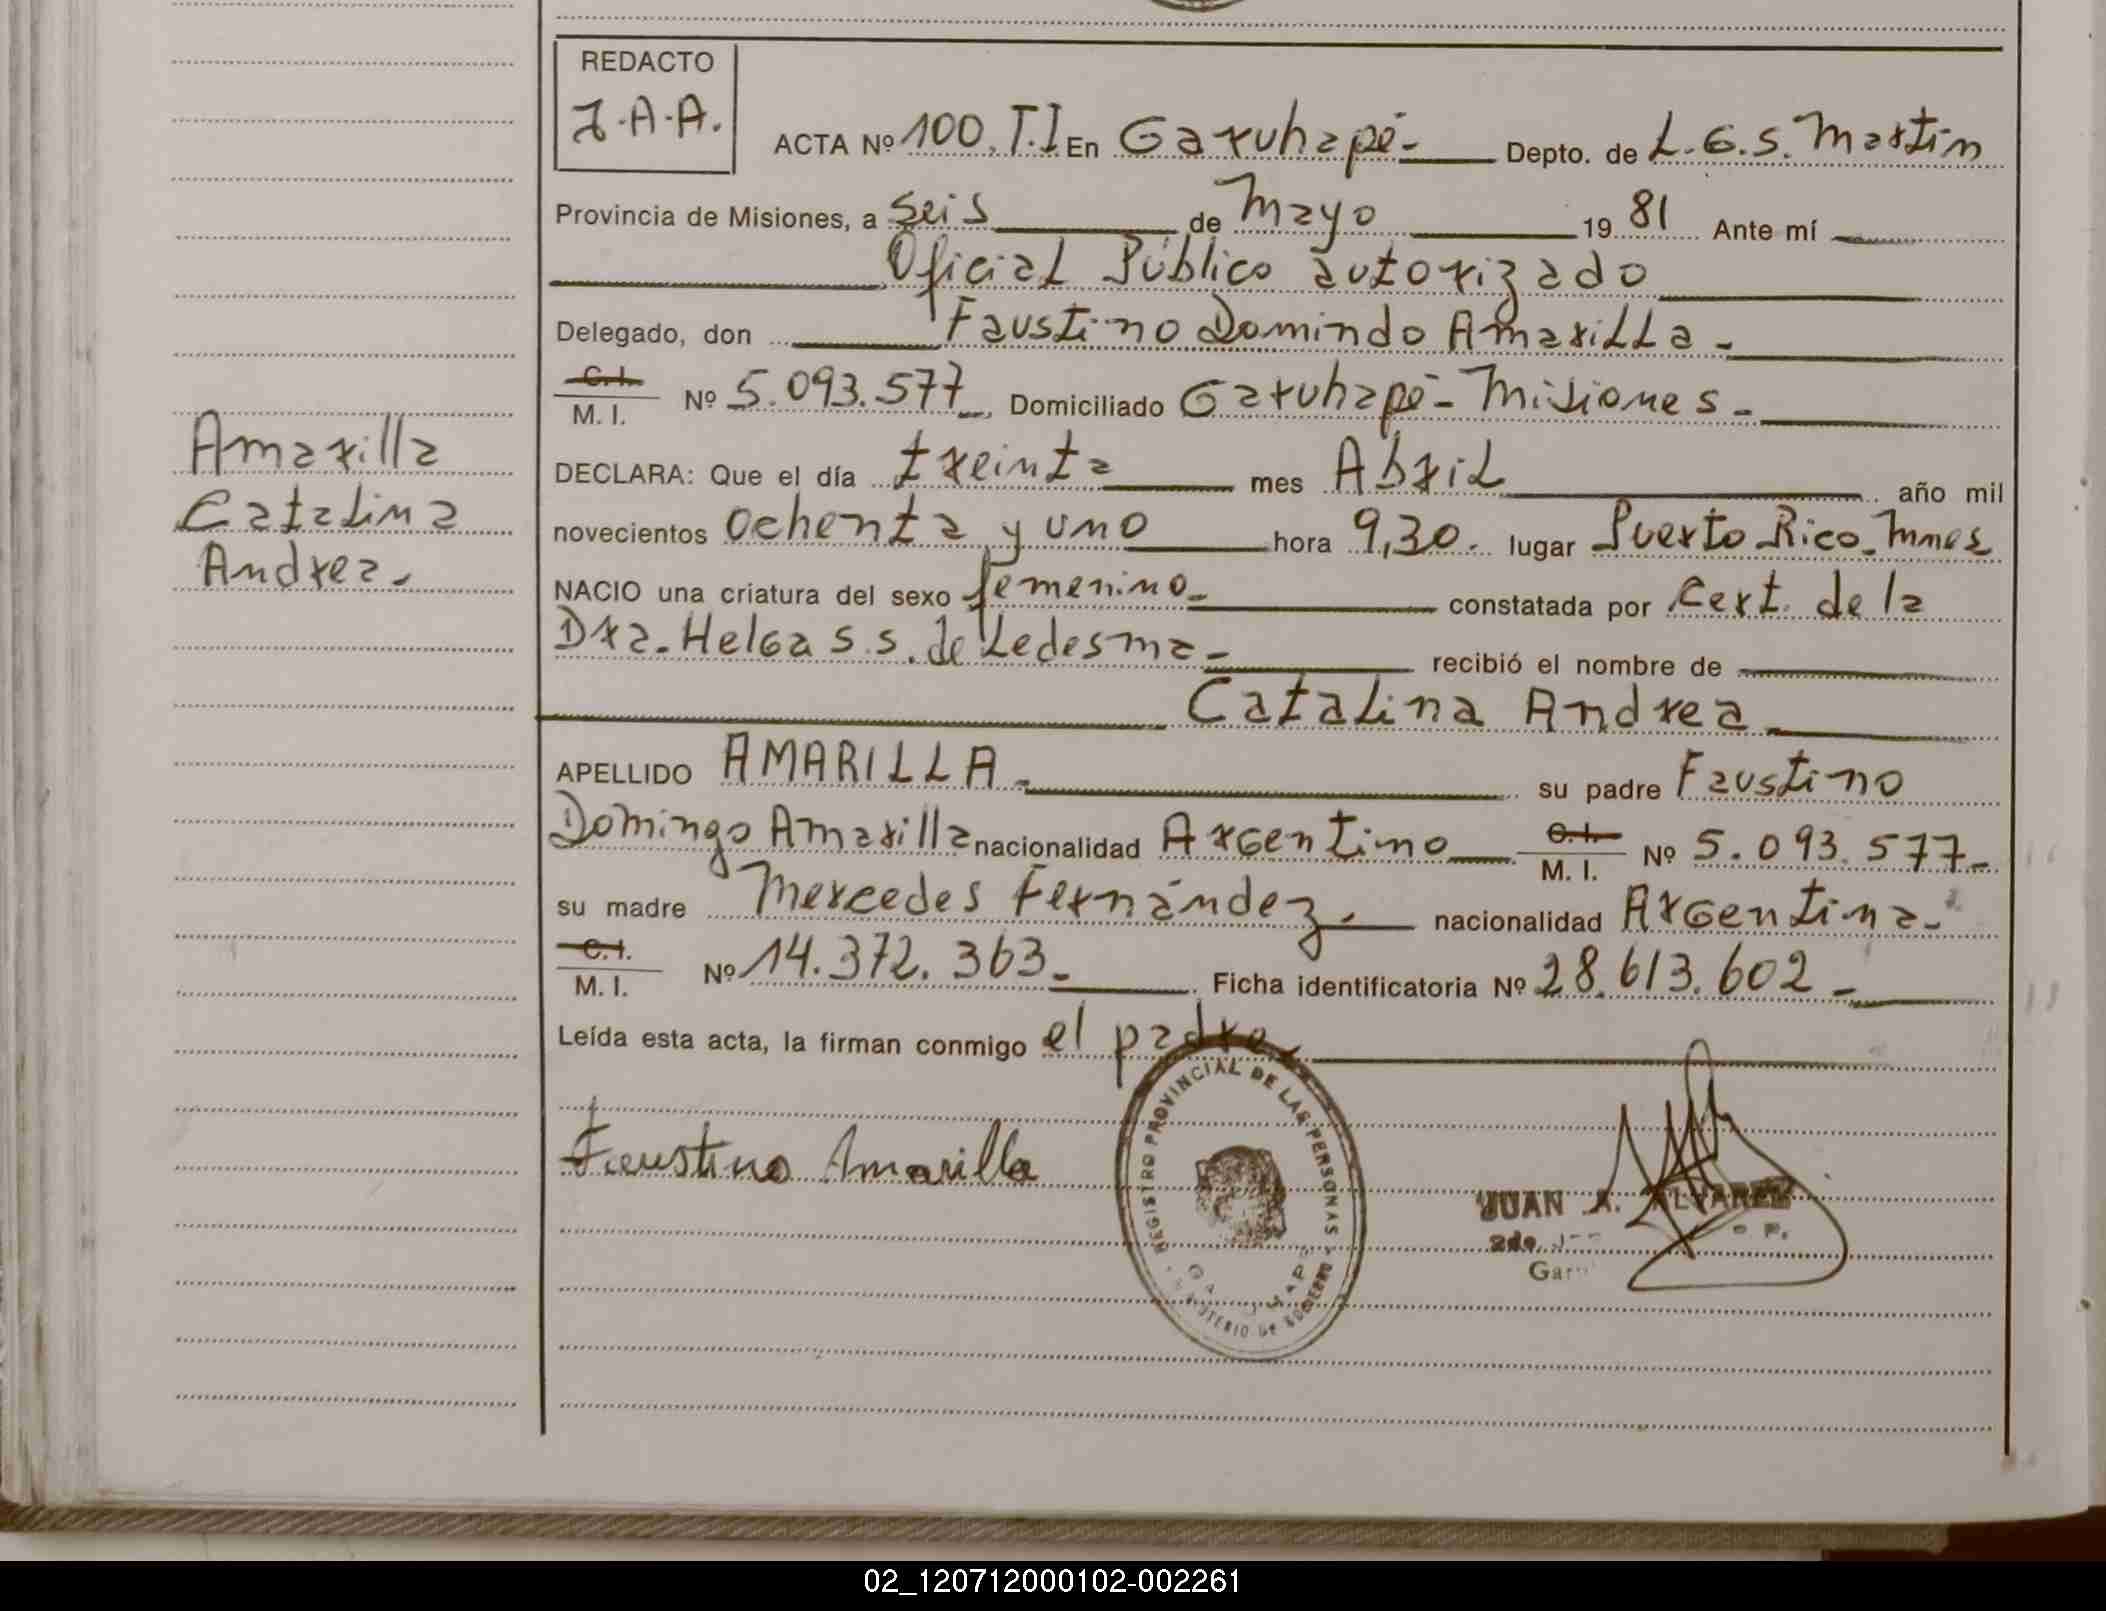 REDACTO
J.A.A.
ACTA Nº 100. T.I En Garuhapé- Depto. de L.G.S. Martin
Provincia de Misiones, a seis de Mayo 1981 Ante mí
Oficial Público autorizado
Delegado, don Faustino Domindo Amarilla-
C.I.
M. I. Nº 5.093.577 Domiciliado Garuhapé- Misiones-
Amarilla
Catalina
Andrea.
DECLARA: Que el día treinta mes Abril año mil
novecientos ochenta y uno hora 9,30. lugar Puerto Rico. Mnes
NACIO una criatura del sexo femenino- constatada por Cert. de la
Dra. Helga S.S. de Ledesma- recibió el nombre de
Catalina Andrea
APELLIDO AMARILLA- su padre Faustino
Domingo Amarilla nacionalidad Argentino C.I. M. I. Nº 5.093.577-
su madre Mercedes Fernández. nacionalidad Argentina-
C.I.
M. I. Nº 14.372.363- Ficha identificatoria Nº 28.613.602-
Leída esta acta, la firman conmigo el padre.
Faustino Amarilla
REGISTRO PROVINCIAL DE LAS PERSONAS
MINISTERIO DE GOBIERNO
JUAN A. ALVAREZ
2do.
02_120712000102-002261